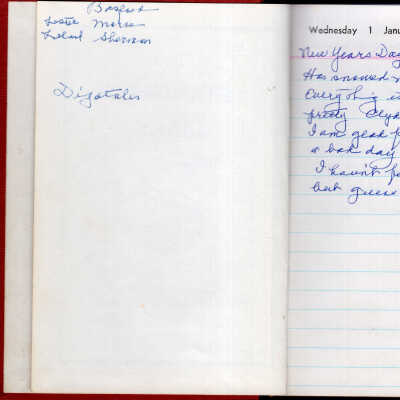 Basford
Leslie Morse
Leland Sherman
Digotalis
Wednesday 1 Janu
New Years Day
Has snowed
everything is
pretty Clyd
I am glad f
a bad day
I havn't fe
but guess